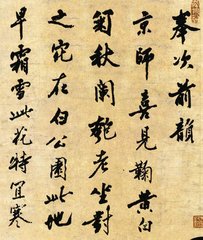 奉次前韻
京師喜見鞠黄白
菊秋闌匏老坐對
之宛在伯公園此地
早霜雪此花特宜寒